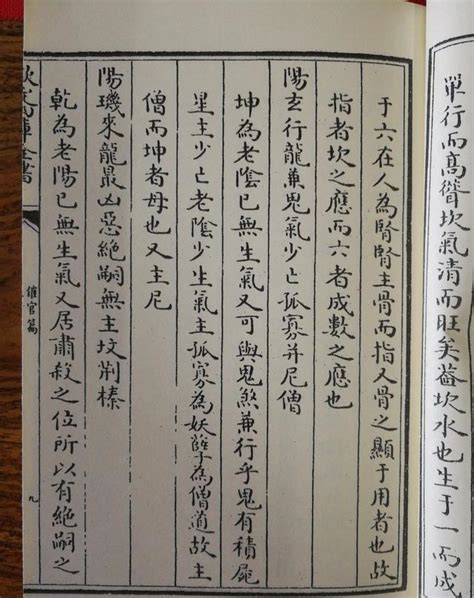 單行而高聳坎氣清而旺矣蓋坎水也生于一而成
于六在人為腎腎主骨而指又骨之顯于用者也故
指者坎之應而六者成數之應也
陽玄行龍兼鬼氣少亡孤寡并尼僧
坤為老陰已無生氣又可與鬼煞兼行乎鬼有積屍
星主少亡老陰少生氣主孤寡為妖孽為僧道故主
僧而坤者母也又主尼
陽璣來龍最凶惡絕嗣無主墳荆榛
乾為老陽已無生氣又居肅殺之位所以有絕嗣之
催官篇
九